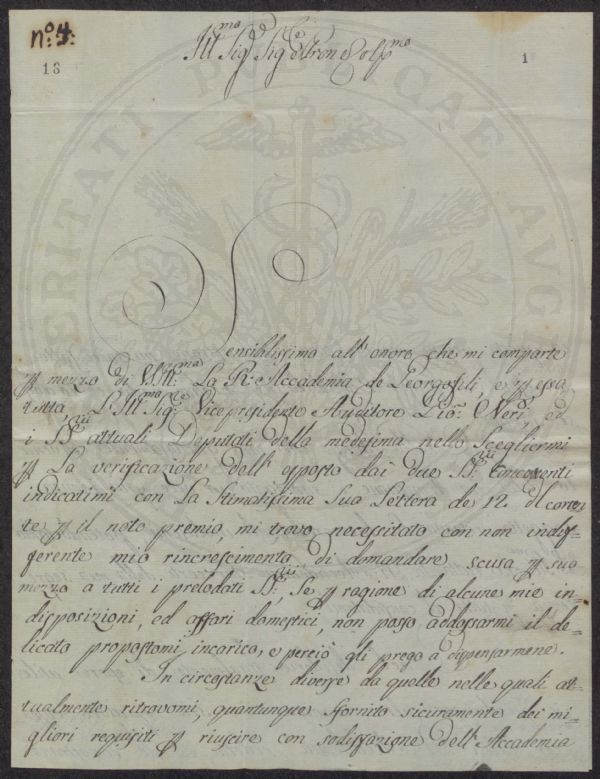 n.º 4:
18
1
Ill.mo Sig.e Sig.e e Pron Col.mo
Sensibilissimo all' onore, che mi comparte
p mezzo di V.S. Ill.ma La R.e Accademia de Georgofili, e p essa
tutta, L' Ill.mo Sig.re Vicepresidente Auditore Gio: Neri, ed
i SS.ri attuali Deputati della medesima nello Scegliermi
p La verificazione dell' esposto dai due SS.ri Concorrenti
indicatimi con La Stimatissima Sua Lettera de 12. d corren
te p il noto premio, mi trovo necessitato con non indif=
ferente mio rincrescimento di domandare scusa p suo
mezzo a tutti i prelodati SS.ri, Se p ragione di alcune mie in=
disposizioni, ed affari domestici, non posso addossarmi il de=
licato propostomi incarico, e perciò gli prego a dispensarmene.
In circostanze diverse da quelle nelle quali at=
tualmente ritrovomi, quantunque sfornito sicuramente dei mi=
gliori requisiti p riuscire con sodisfazione dell' Accademia
PUBLICAE
VERITATI
AVG